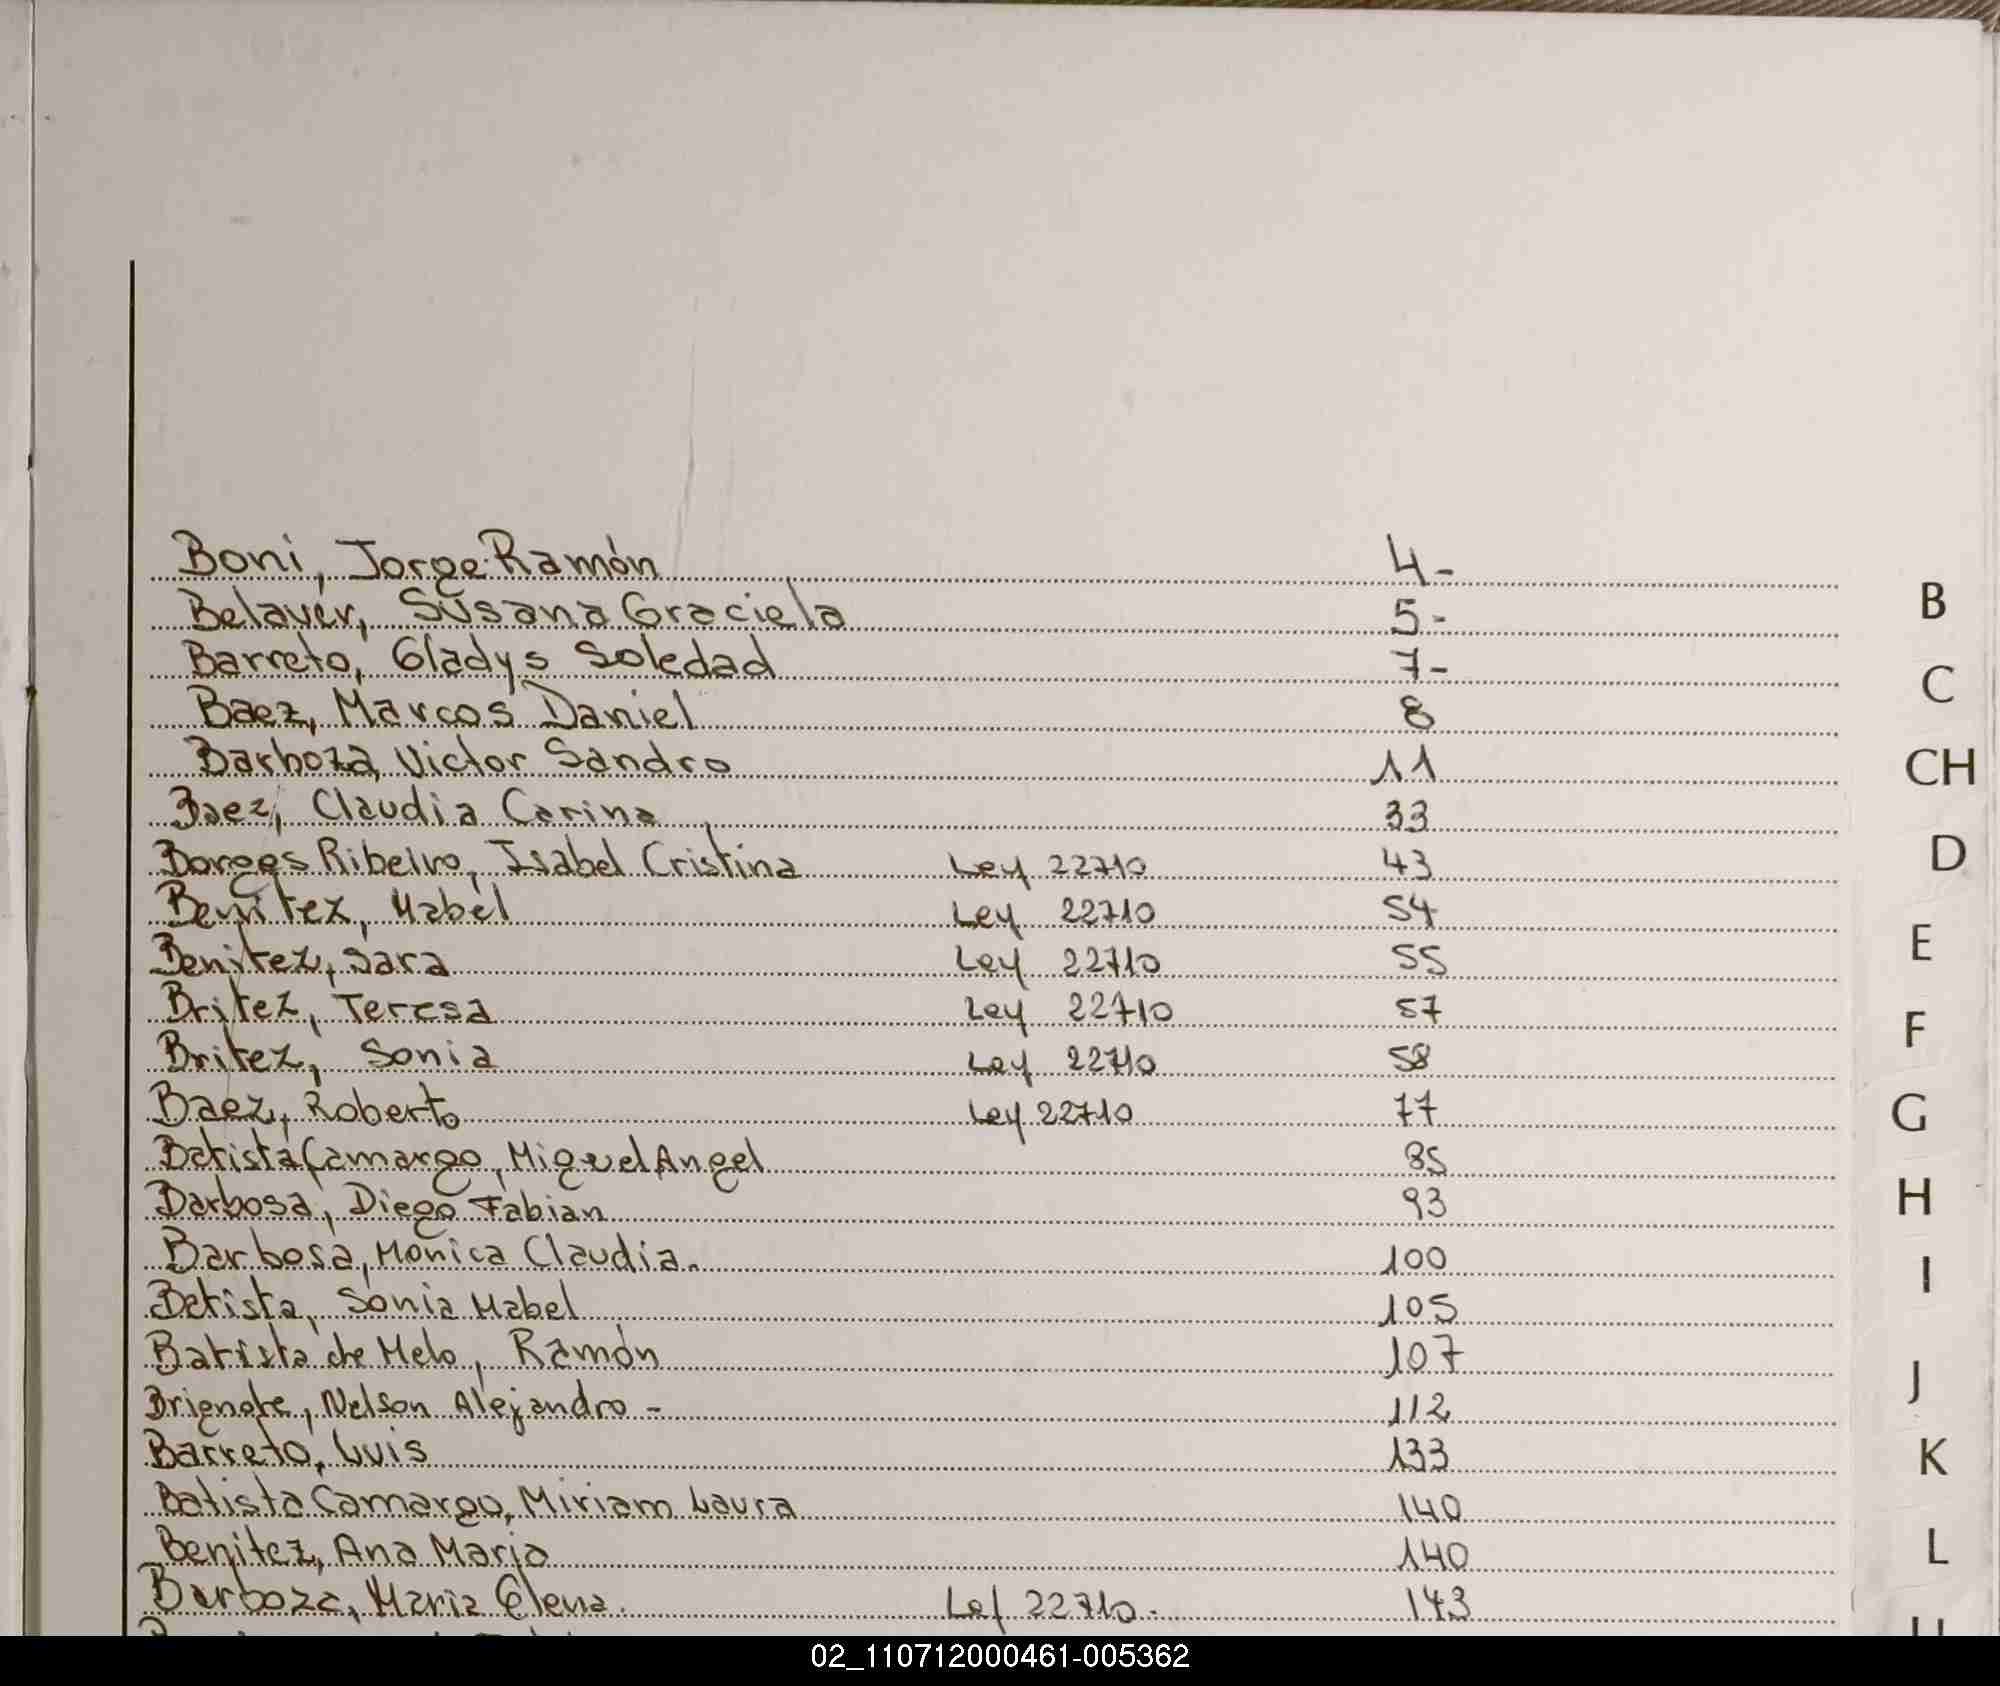 Boni, Jorge Ramón 4-
Belaver, Susana Graciela 5-
Barreto, Gladys Soledad 7-
Baez, Marcos Daniel 8
Barboza, Victor Sandro 11
Baez, Claudia Carina 33
Borges Ribeiro, Isabel Cristina Ley 22710 43
Benitez, Mabel Ley 22710 54
Benitez, Sara Ley 22710 55
Britez, Teresa Ley 22710 57
Britez, Sonia Ley 22710 58
Baez, Roberto Ley 22710 77
Batista Camargo, Miguel Angel 85
Barbosa, Diego Fabian 93
Barbosa, Monica Claudia. 100
Batista, Sonia Mabel 105
Batista de Melo, Ramón 107
Nelson Alejandro - 112
Barreto, Luis 133
Batista Camargo, Miriam Laura 140
Benitez, Ana Maria 140
Barboza, Maria Elena. Ley 22710. 143
B
C
CH
D
E
F
G
H
I
J
K
L
02_110712000461-005362